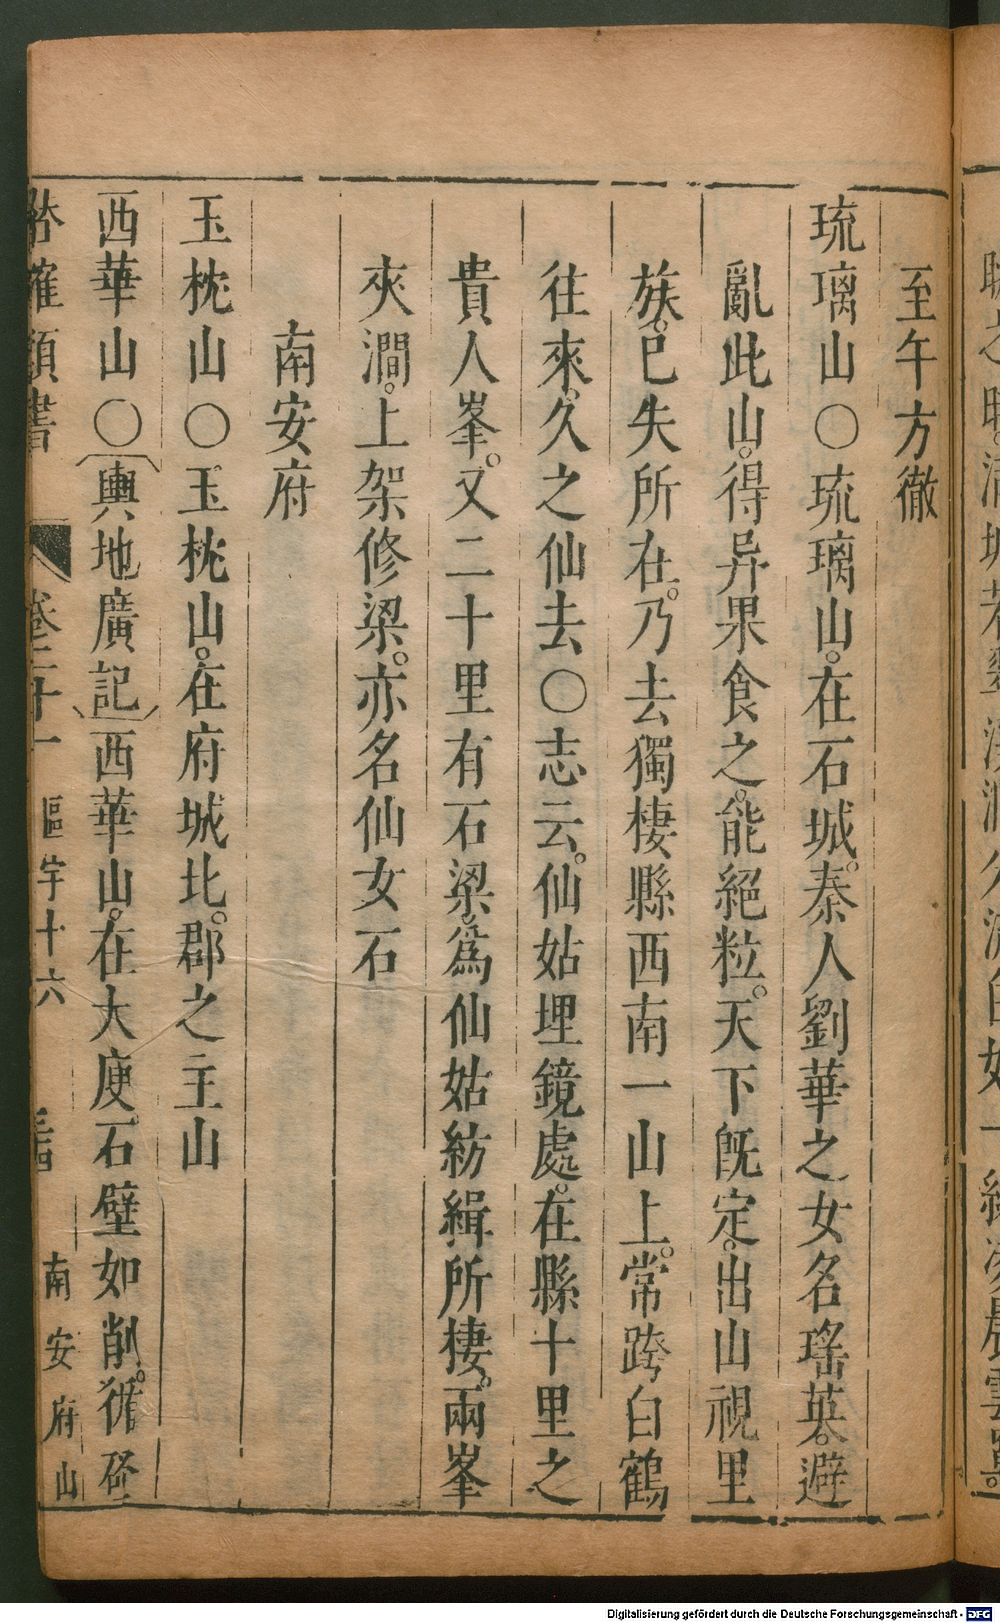 至午方徹
琉璃山○琉璃山。在石城。秦人劉華之女名瑤英。避
亂此山。得异果食之。能絕粒。天下既定。出山視里
族。已失所在。乃去獨棲縣西南一山上。常跨白鶴
往來。久之仙去○志云。仙姑埋鏡處。在縣十里之
貴人峯。又二十里有石梁。為仙姑紡緝所棲。兩峯
夾澗。上架修梁。亦名仙女石
南安府
玉枕山○玉枕山。在府城北。郡之主山
西華山○輿地廣記西華山。在大庾石壁如削。循磴
卷二十一 區宇十六 南安府山
Digitalisierung gefördert durch die Deutsche Forschungsgemeinschaft - DFG